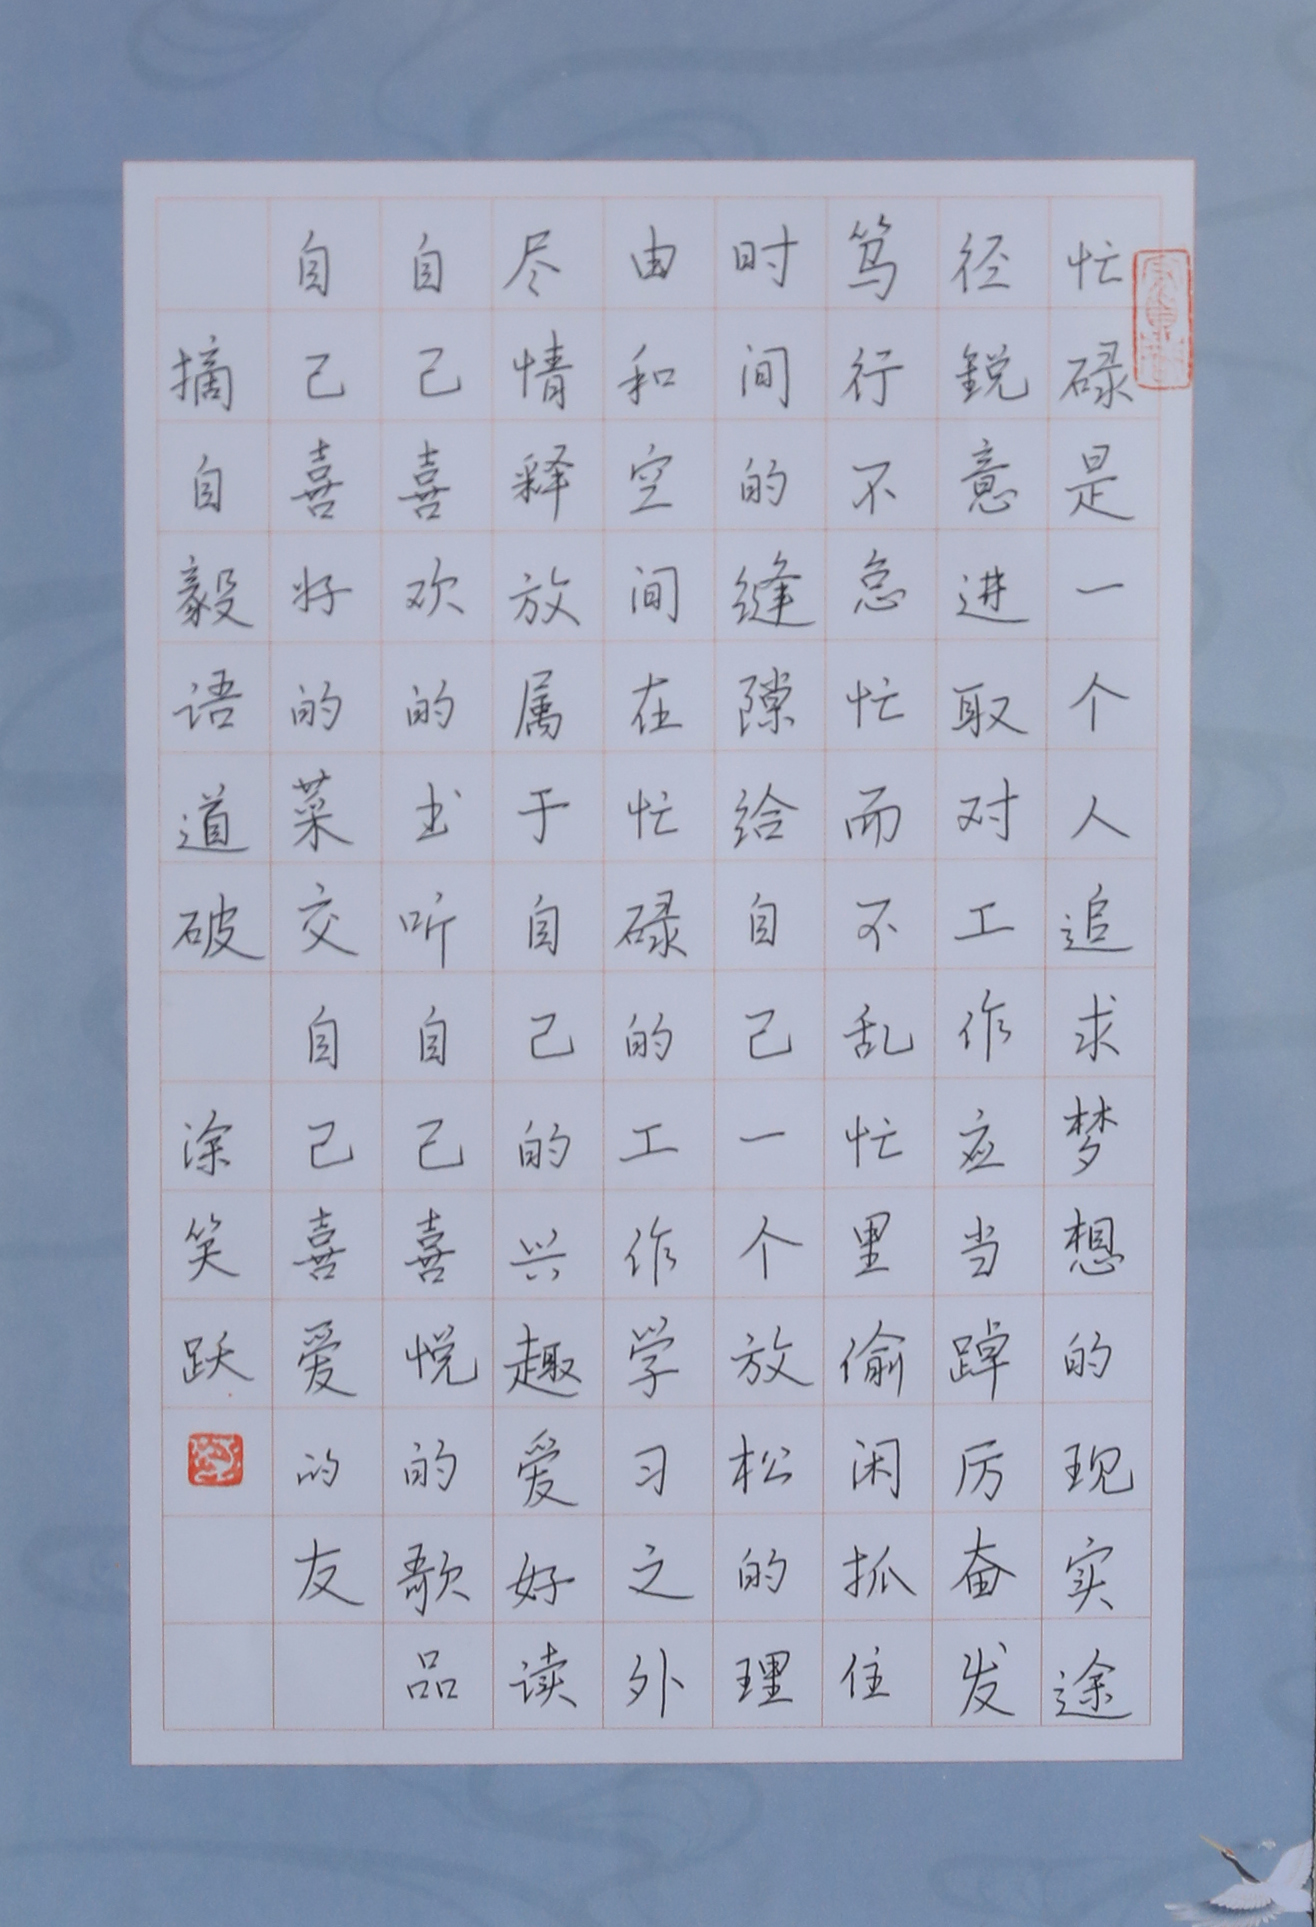 忙碌是一个人追求梦想的现实途
径锐意进取对工作应当踔厉奋发
笃行不急忙而不乱忙里偷闲抓住
时间的缝隙给自己一个放松的理
由和空间在忙碌的工作学习之外
尽情释放属于自己的兴趣爱好读
自己喜欢的书听自己喜悦的歌品
自己喜好的菜交自己喜爱的友
摘自毅语道破 涂笑跃